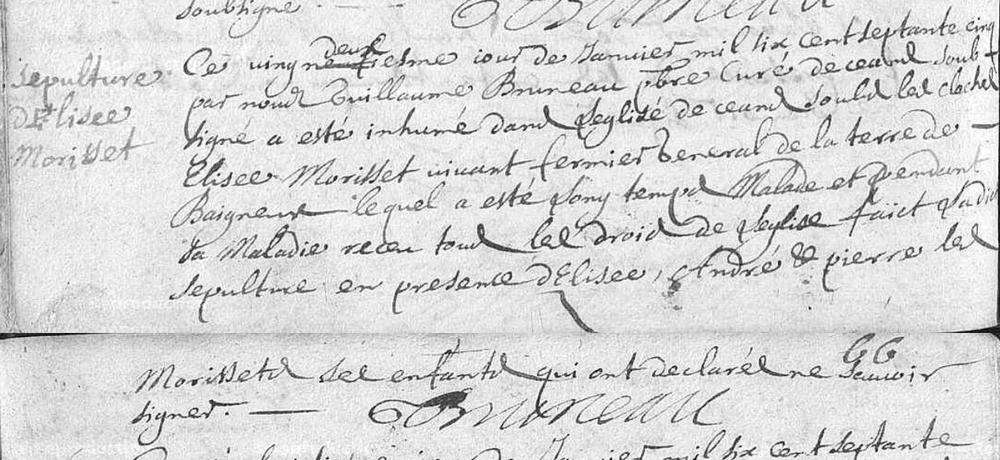 soubsigné
Bruneau
sepulture
d'Elisee
Morisset
Ce vingt deuxiesme iour de Janvier mil six cent septante cinq
par nous Guillaume Bruneau pbre Curé de ceans soub-
signé a esté inhumé dans l'eglise de ceans soubs les cloches
Elisee Morisset vivant fermier General de la terre de
Baigneux lequel a esté long temps Malade et pendant
sa Maladie receu tous les drois de l'eglise faict ladite
sepulture en presence d'Elisee, André & pierre les
Morissets ses enfants qui ont declarés ne sauvoir
signer.
Bruneau
de Janvier mil six cent septante